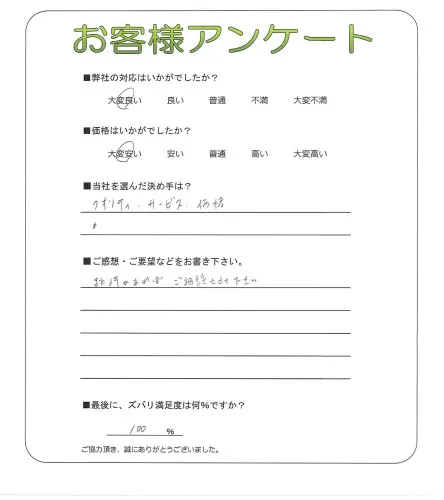 お客様アンケート
■弊社の対応はいかがでしたか？
大変良い 良い 普通 不満 大変不満
■価格はいかがでしたか？
大変安い 安い 普通 高い 大変高い
■当社を選んだ決め手は？
クオリティ・サービス・価格
■ご感想・ご要望などをお書き下さい。
ご相談
■最後に、ズバリ満足度は何%ですか？
100 %
ご協力頂き、誠にありがとうございました。